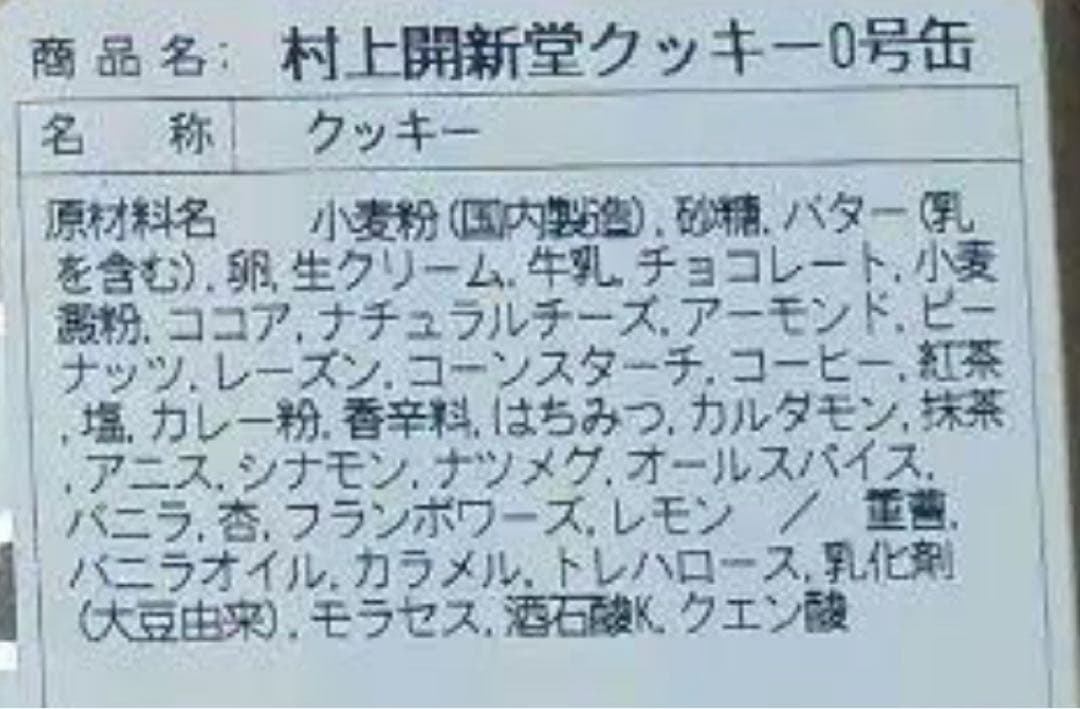 商品名: 村上開新堂クッキー0号缶
名 称 クッキー
原材料名 小麦粉(国内製造), 砂糖, バター(乳
を含む), 卵, 生クリーム, 牛乳, チョコレート, 小麦
澱粉, ココア, ナチュラルチーズ, アーモンド, ピー
ナッツ, レーズン, コーンスターチ, コーヒー, 紅茶
, 塩, カレー粉, 香辛料, はちみつ, カルダモン, 抹茶
, アニス, シナモン, ナツメグ, オールスパイス,
バニラ, 杏, フランボワーズ, レモン / 重曹,
バニラオイル, カラメル, トレハロース, 乳化剤
(大豆由来), モラセス, 酒石酸K, クエン酸